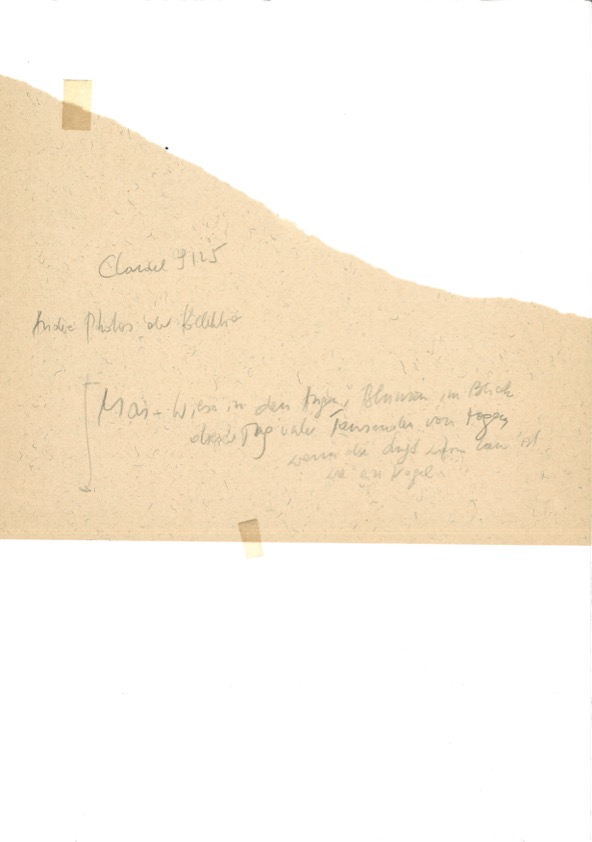 Claudel 9125
Andre Photos der
Mai + Wiese in den Augen, Blumen im Blick
dieser Tag unter Tausenden von Tagen
wenn die Luft schon lau ist
wie ein Vogel